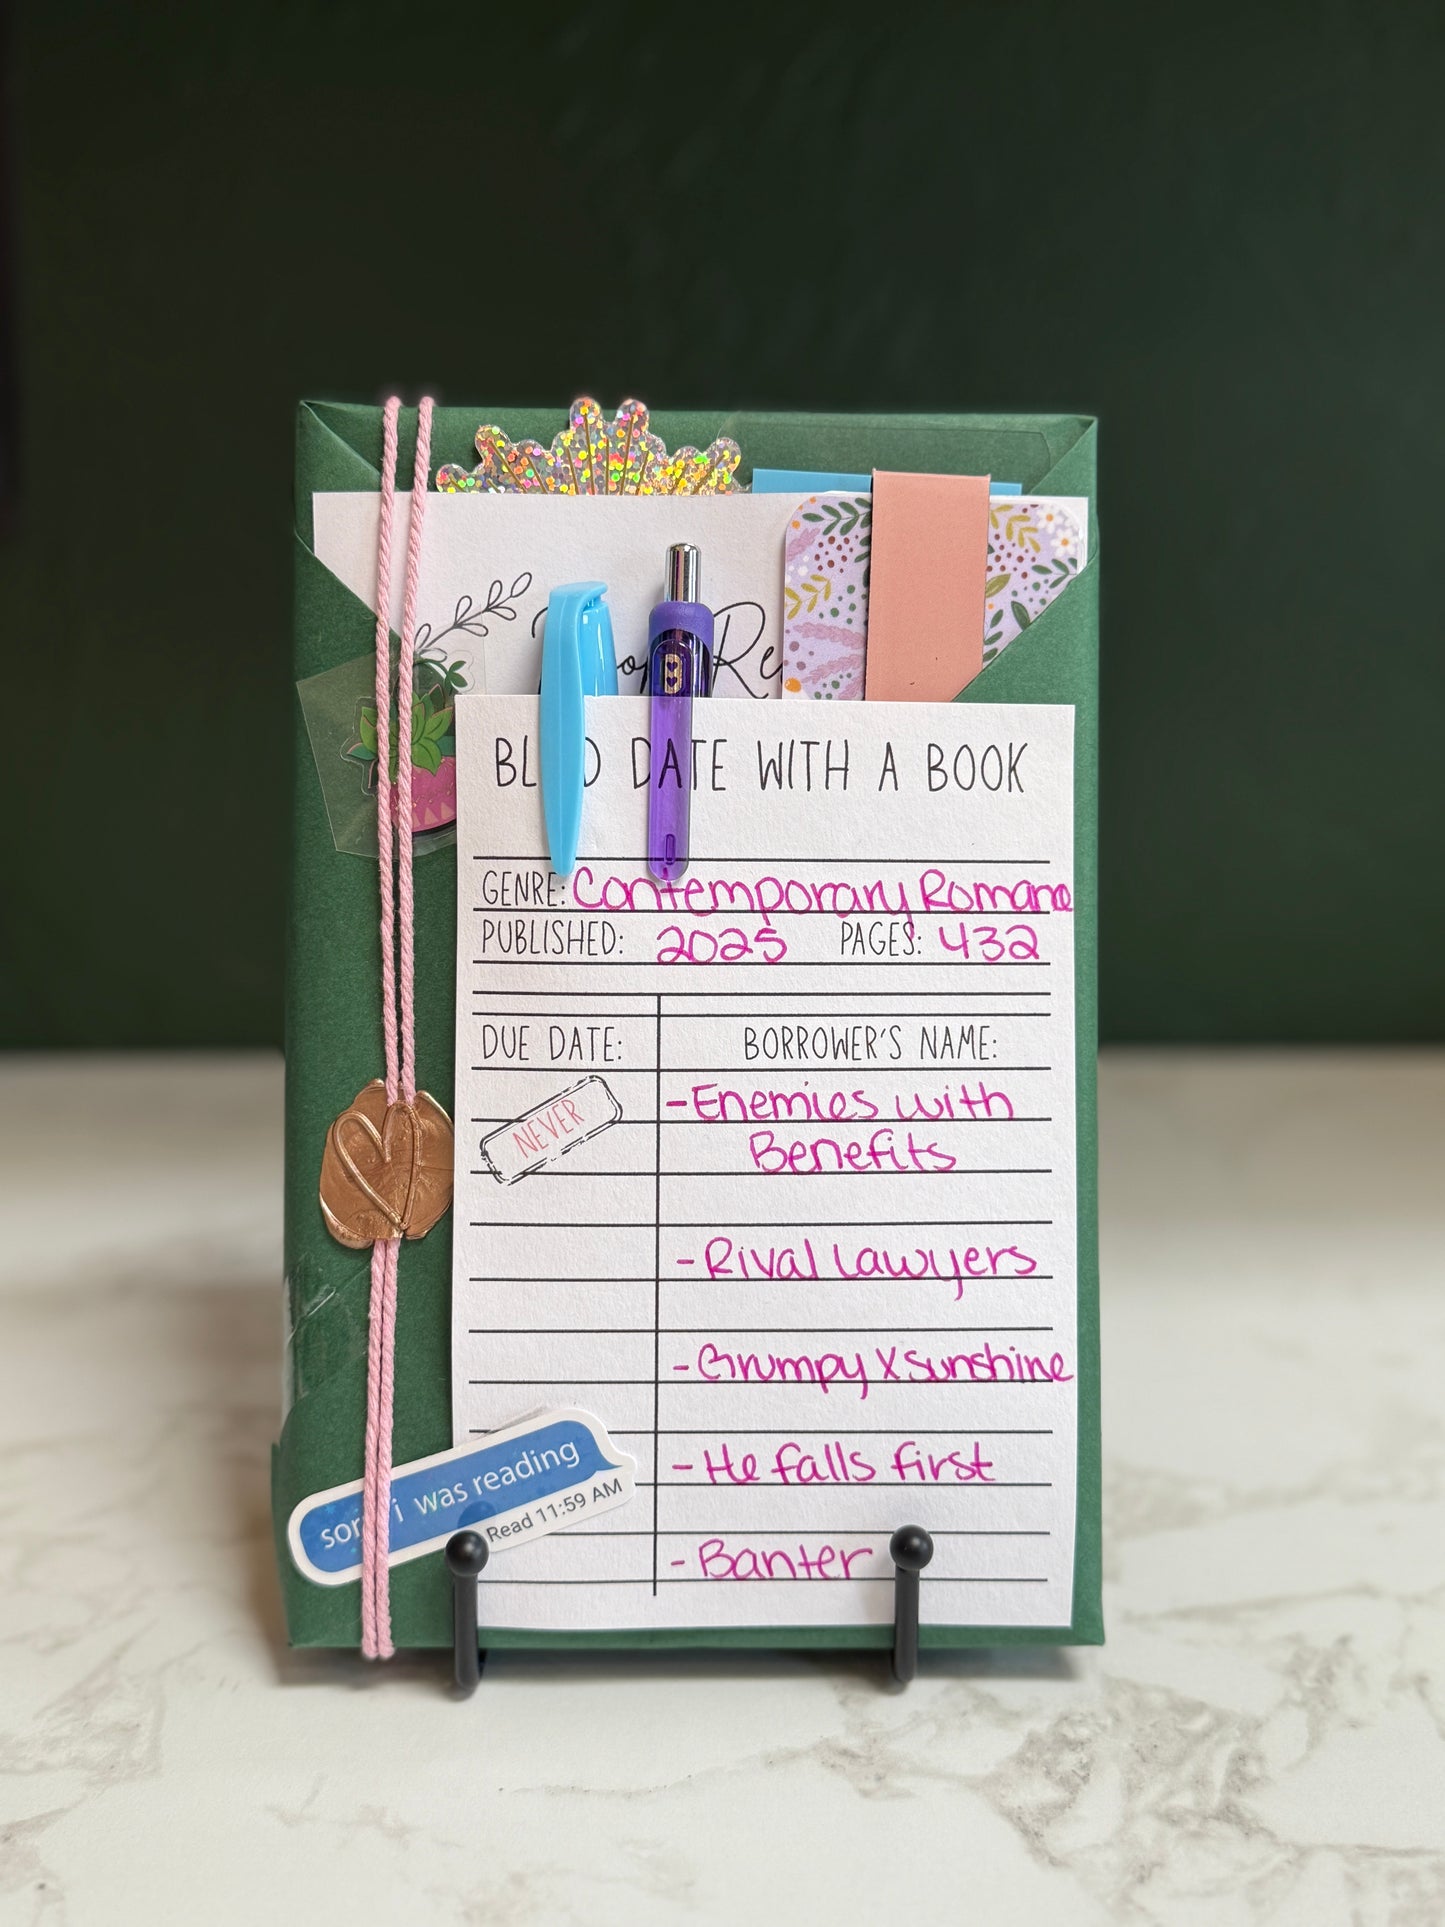 B
BLIND DATE WITH A BOOK
GENRE: Contemporary Romance
PUBLISHED: 2025 PAGES: 432
DUE DATE: BORROWER'S NAME:
NEVER
-Enemies with
Benefits
-Rival Lawyers
-Grumpy X Sunshine
-He falls first
-Banter
sorry i was reading
Read 11:59 AM